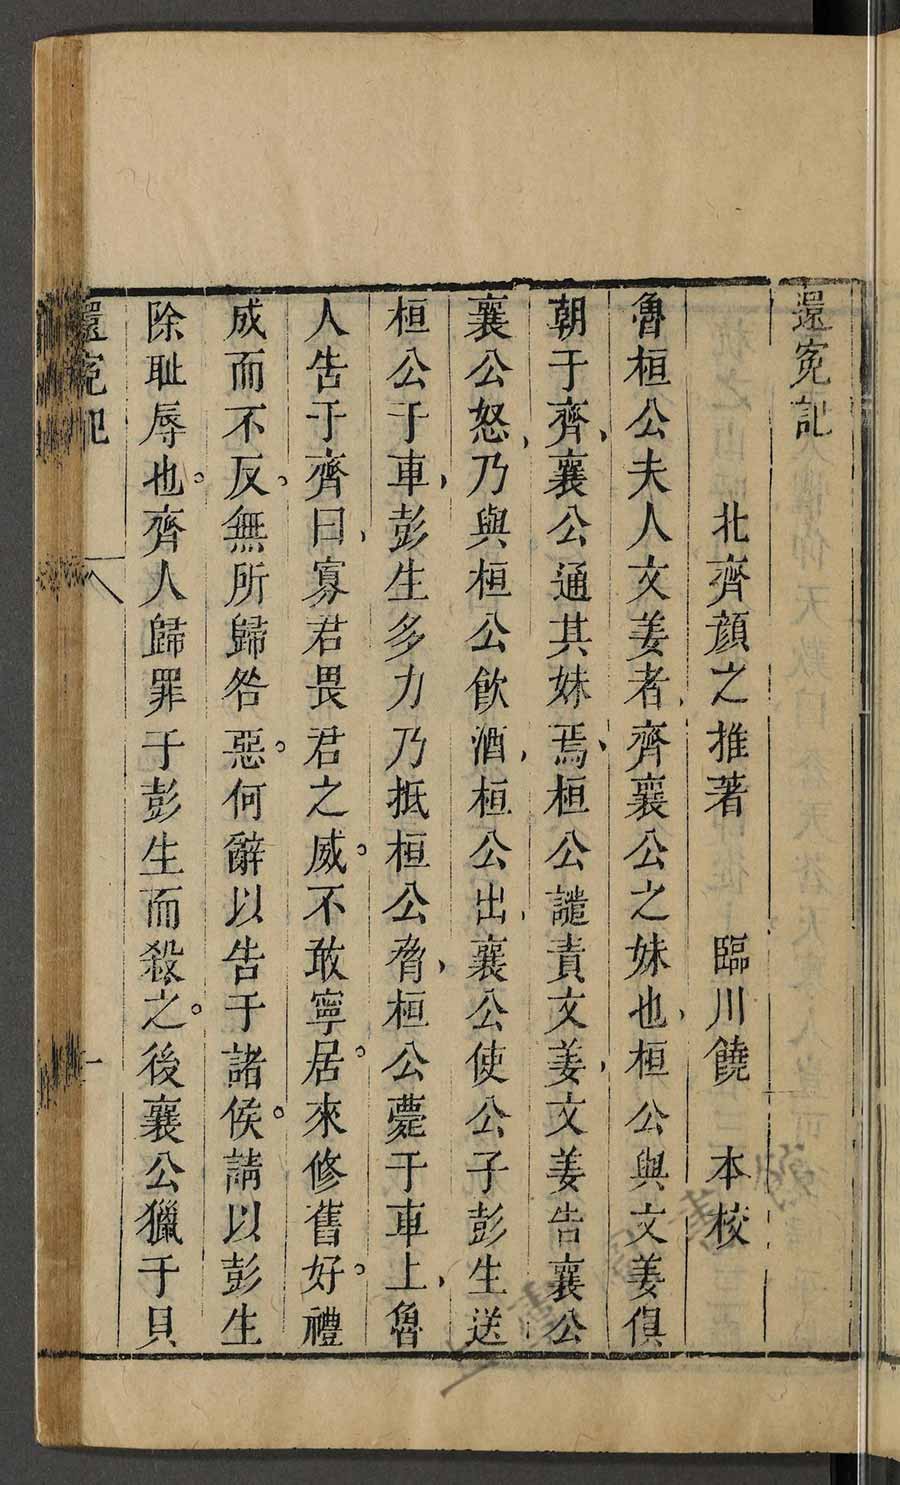 還寃記
北齊顔之推著　臨川饒　本校
魯桓公夫人文姜者,齊襄公之妹也,桓公與文姜俱
朝于齊,襄公通其妹焉,桓公譴責文姜,文姜告襄公
襄公怒,乃與桓公飲酒,桓公出,襄公使公子彭生送
桓公于車,彭生多力乃抵桓公脅,桓公薨于車上,魯
人告于齊曰,寡君畏君之威。不敢寧居。來修舊好。禮
成而不反。無所歸咎惡。何辭以告于諸侯。請以彭生
除耻辱也。齊人歸罪于彭生而殺之。後襄公獵于貝
還寃記
一